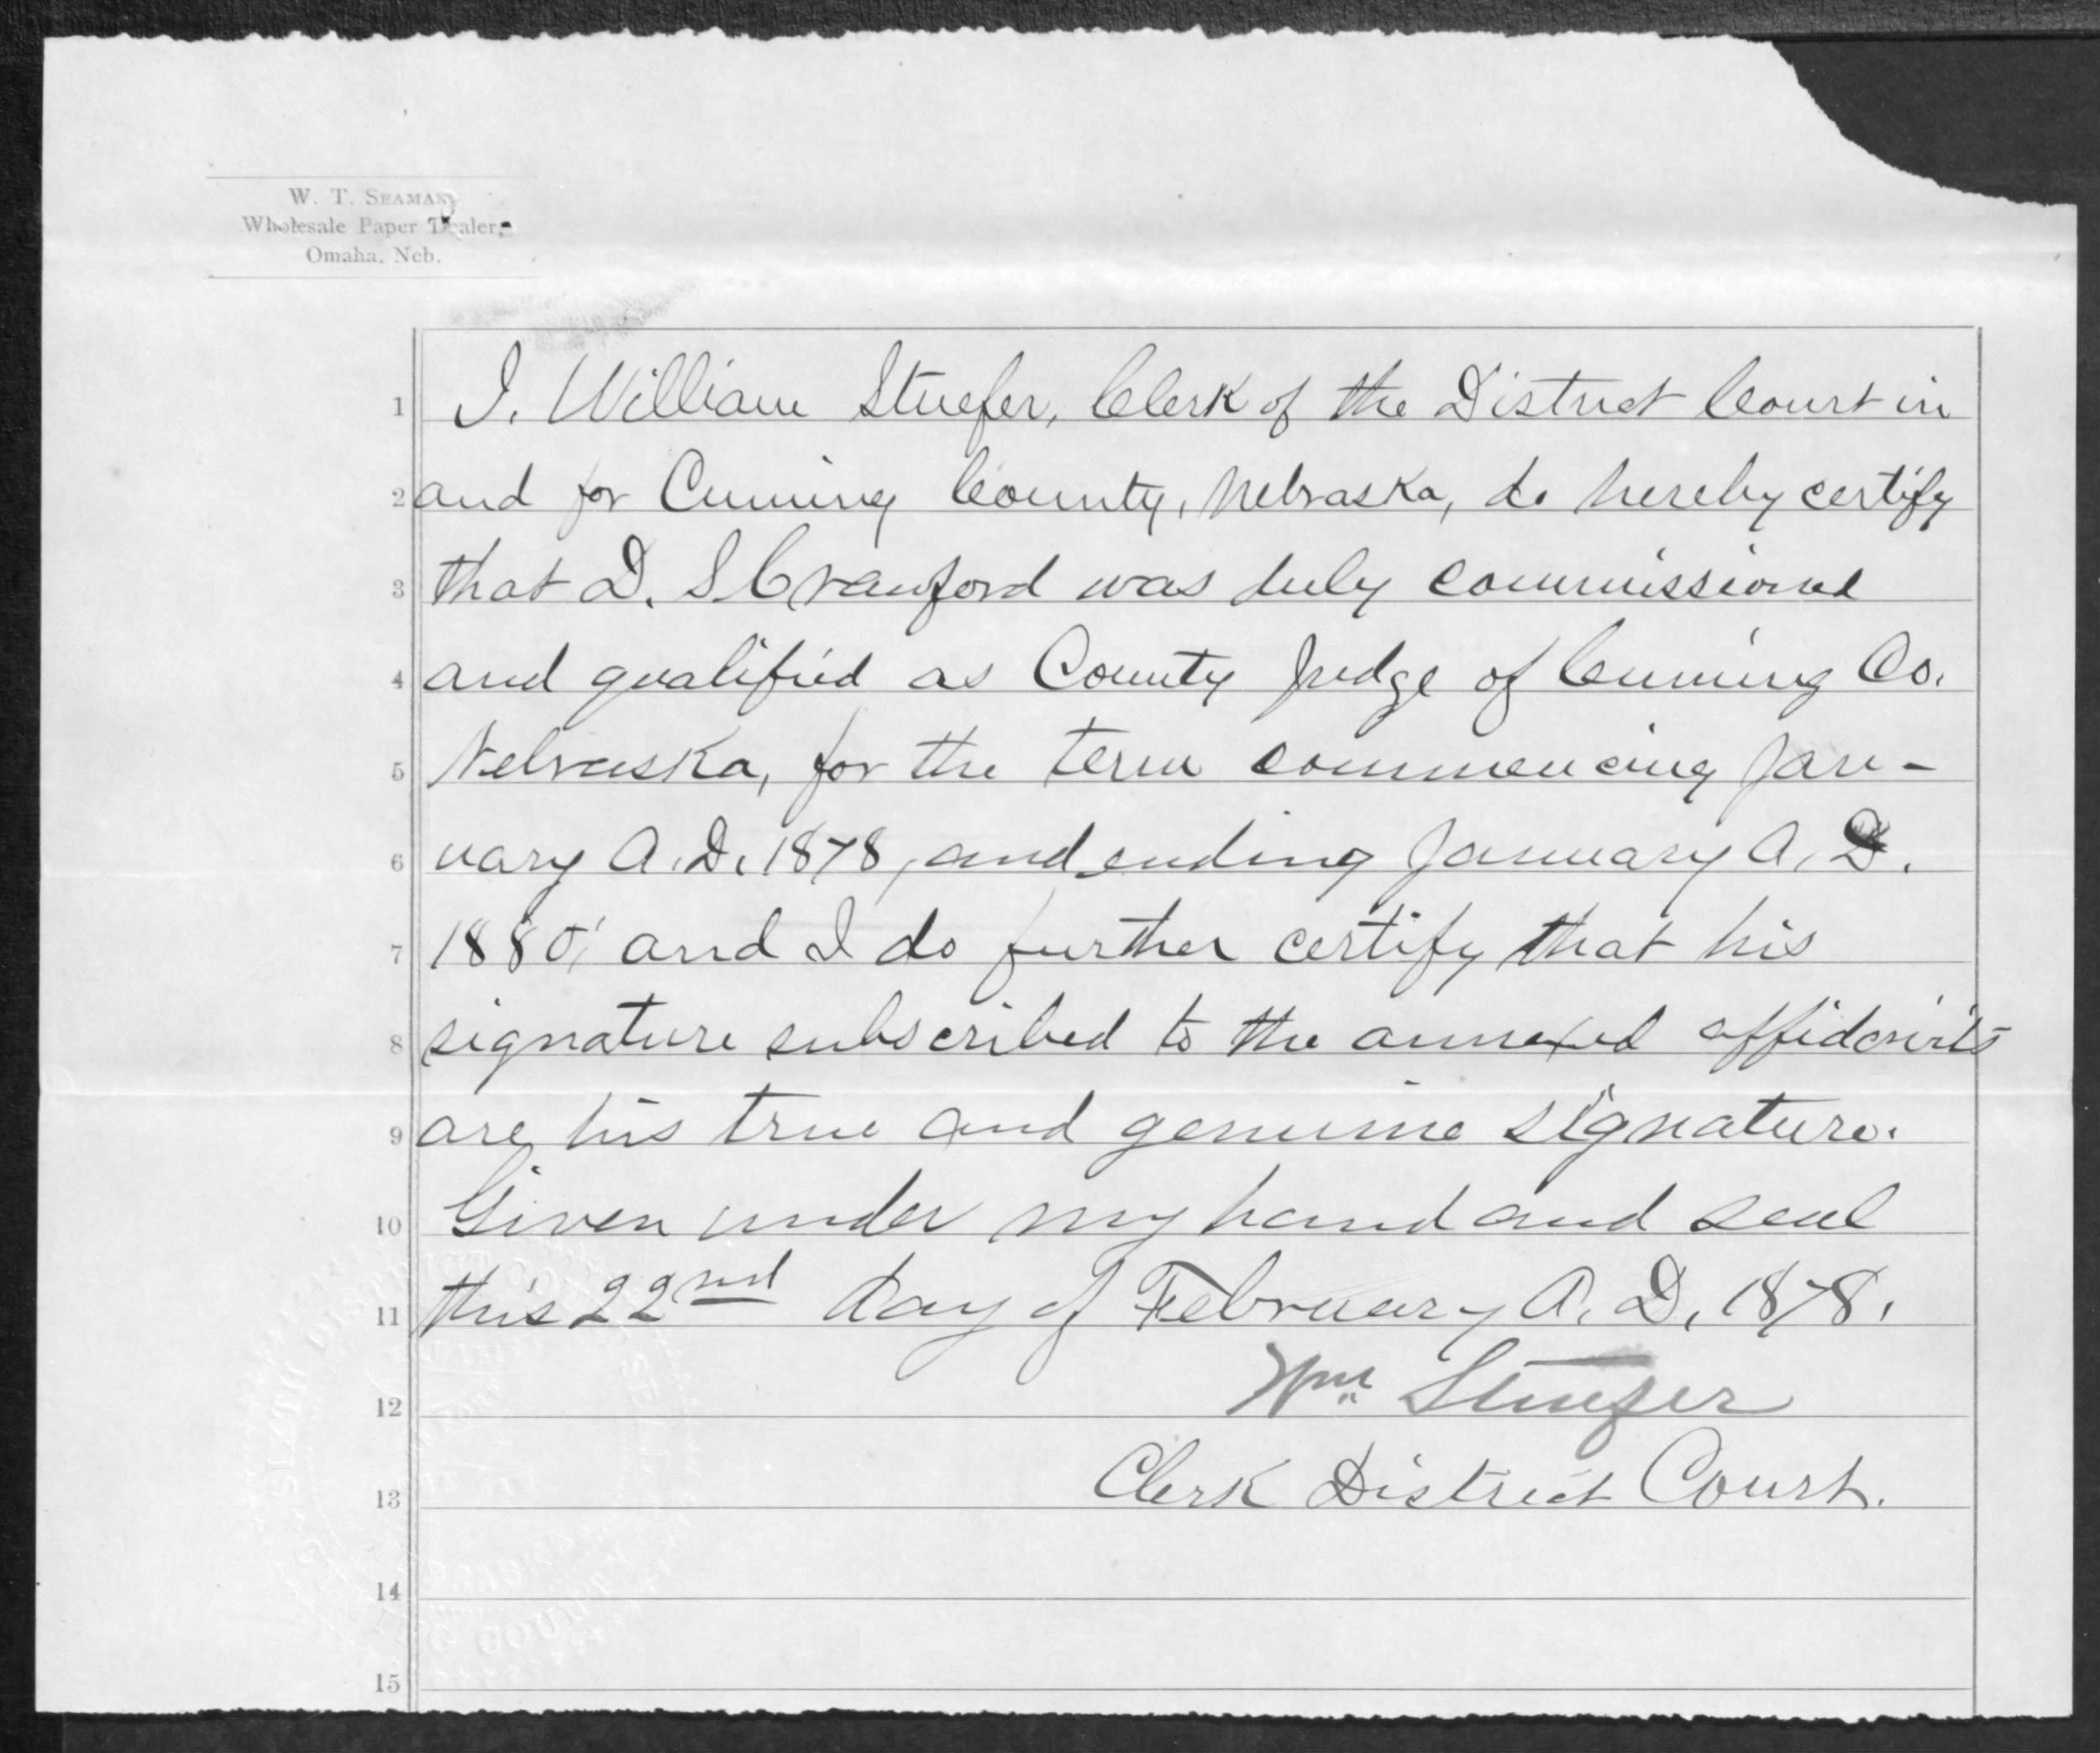 W. T. SEAMAN,
Wholesale Paper Dealer,
Omaha, Neb.
1 I. William Stuefer, Clerk of the District Court in
2 and for Cuming County, Nebraska, do hereby certify
3 that D. S Crawford was duly commissioned
4 and qualified as County Judge of Cuming Co.
5 Nebraska, for the term commencing Jan-
6 uary A. D. 1878, and ending January A. D.
7 1880; and I do further certify that his
8 signature subscribed to the annexed affidavits
9 are his true and genuine signature.
10 Given under my hand and seal
11 this 22nd day of February A. D. 1878.
12 Wm Stuefer
13 Clerk District Court.
14
15